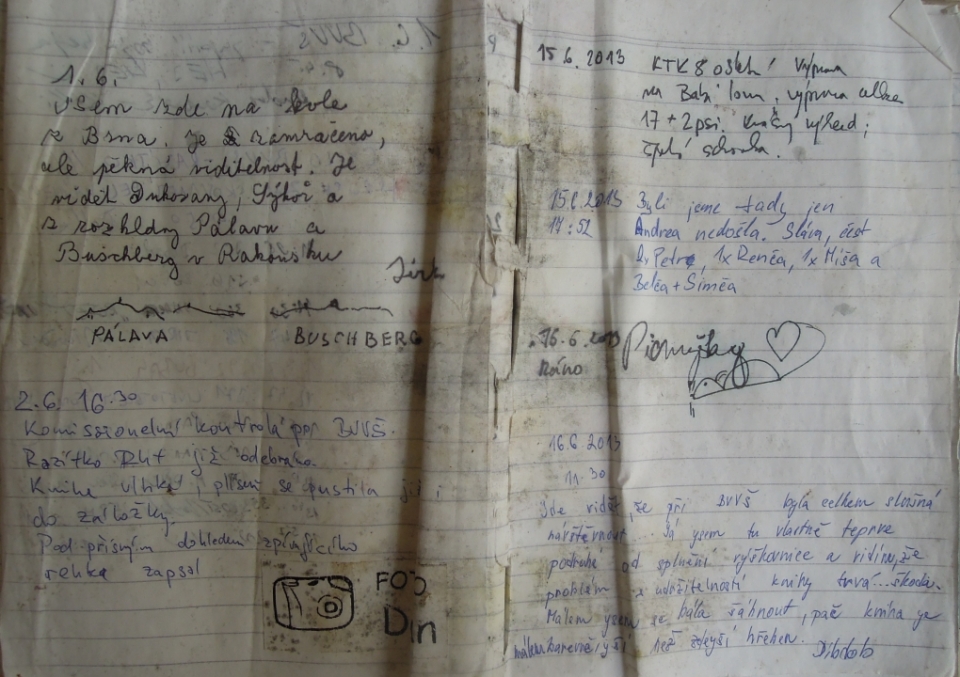 1.6.
Jsem zde na kole
z Brna. Je zamračeno,
ale pěkná viditelnost. Je
vidět Dukovany, Sýkoř a
z rozhledny Pálavu a
Buschberg v Rakousku
Jirk
PÁLAVA BUSCHBERG
2.6. 16.30
Komisionelní kontrola po BVVŠ.
Razítko již odebráno.
Kniha vlhká, plíseň se pustila již i
do záložky.
Pod přísným dohledem
zapsal
FOO
Din
15.6.2013 KTK výprava
na Babí lom, výprava
17 + 2 psi. výhled,
15.6.2013 Byli jsme tady jen
17:52 Andrea nedošla. Sláva, čest
Petr, 1x Renča, 1x Míša a
Belča + Simča
16.6.2013
Ráno
16.6.2013
11.30
Jde vidět, že při BVVŠ byla celkem slušná
návštěvnost. Já jsem tu vlastně teprve
podruhé od splnění výškovnice a vidím, že
problém s udržitelností knihy trvá...škoda.
Málem jsem se bála sáhnout, páč kniha je
málem barevnější než zdejší hřeben.